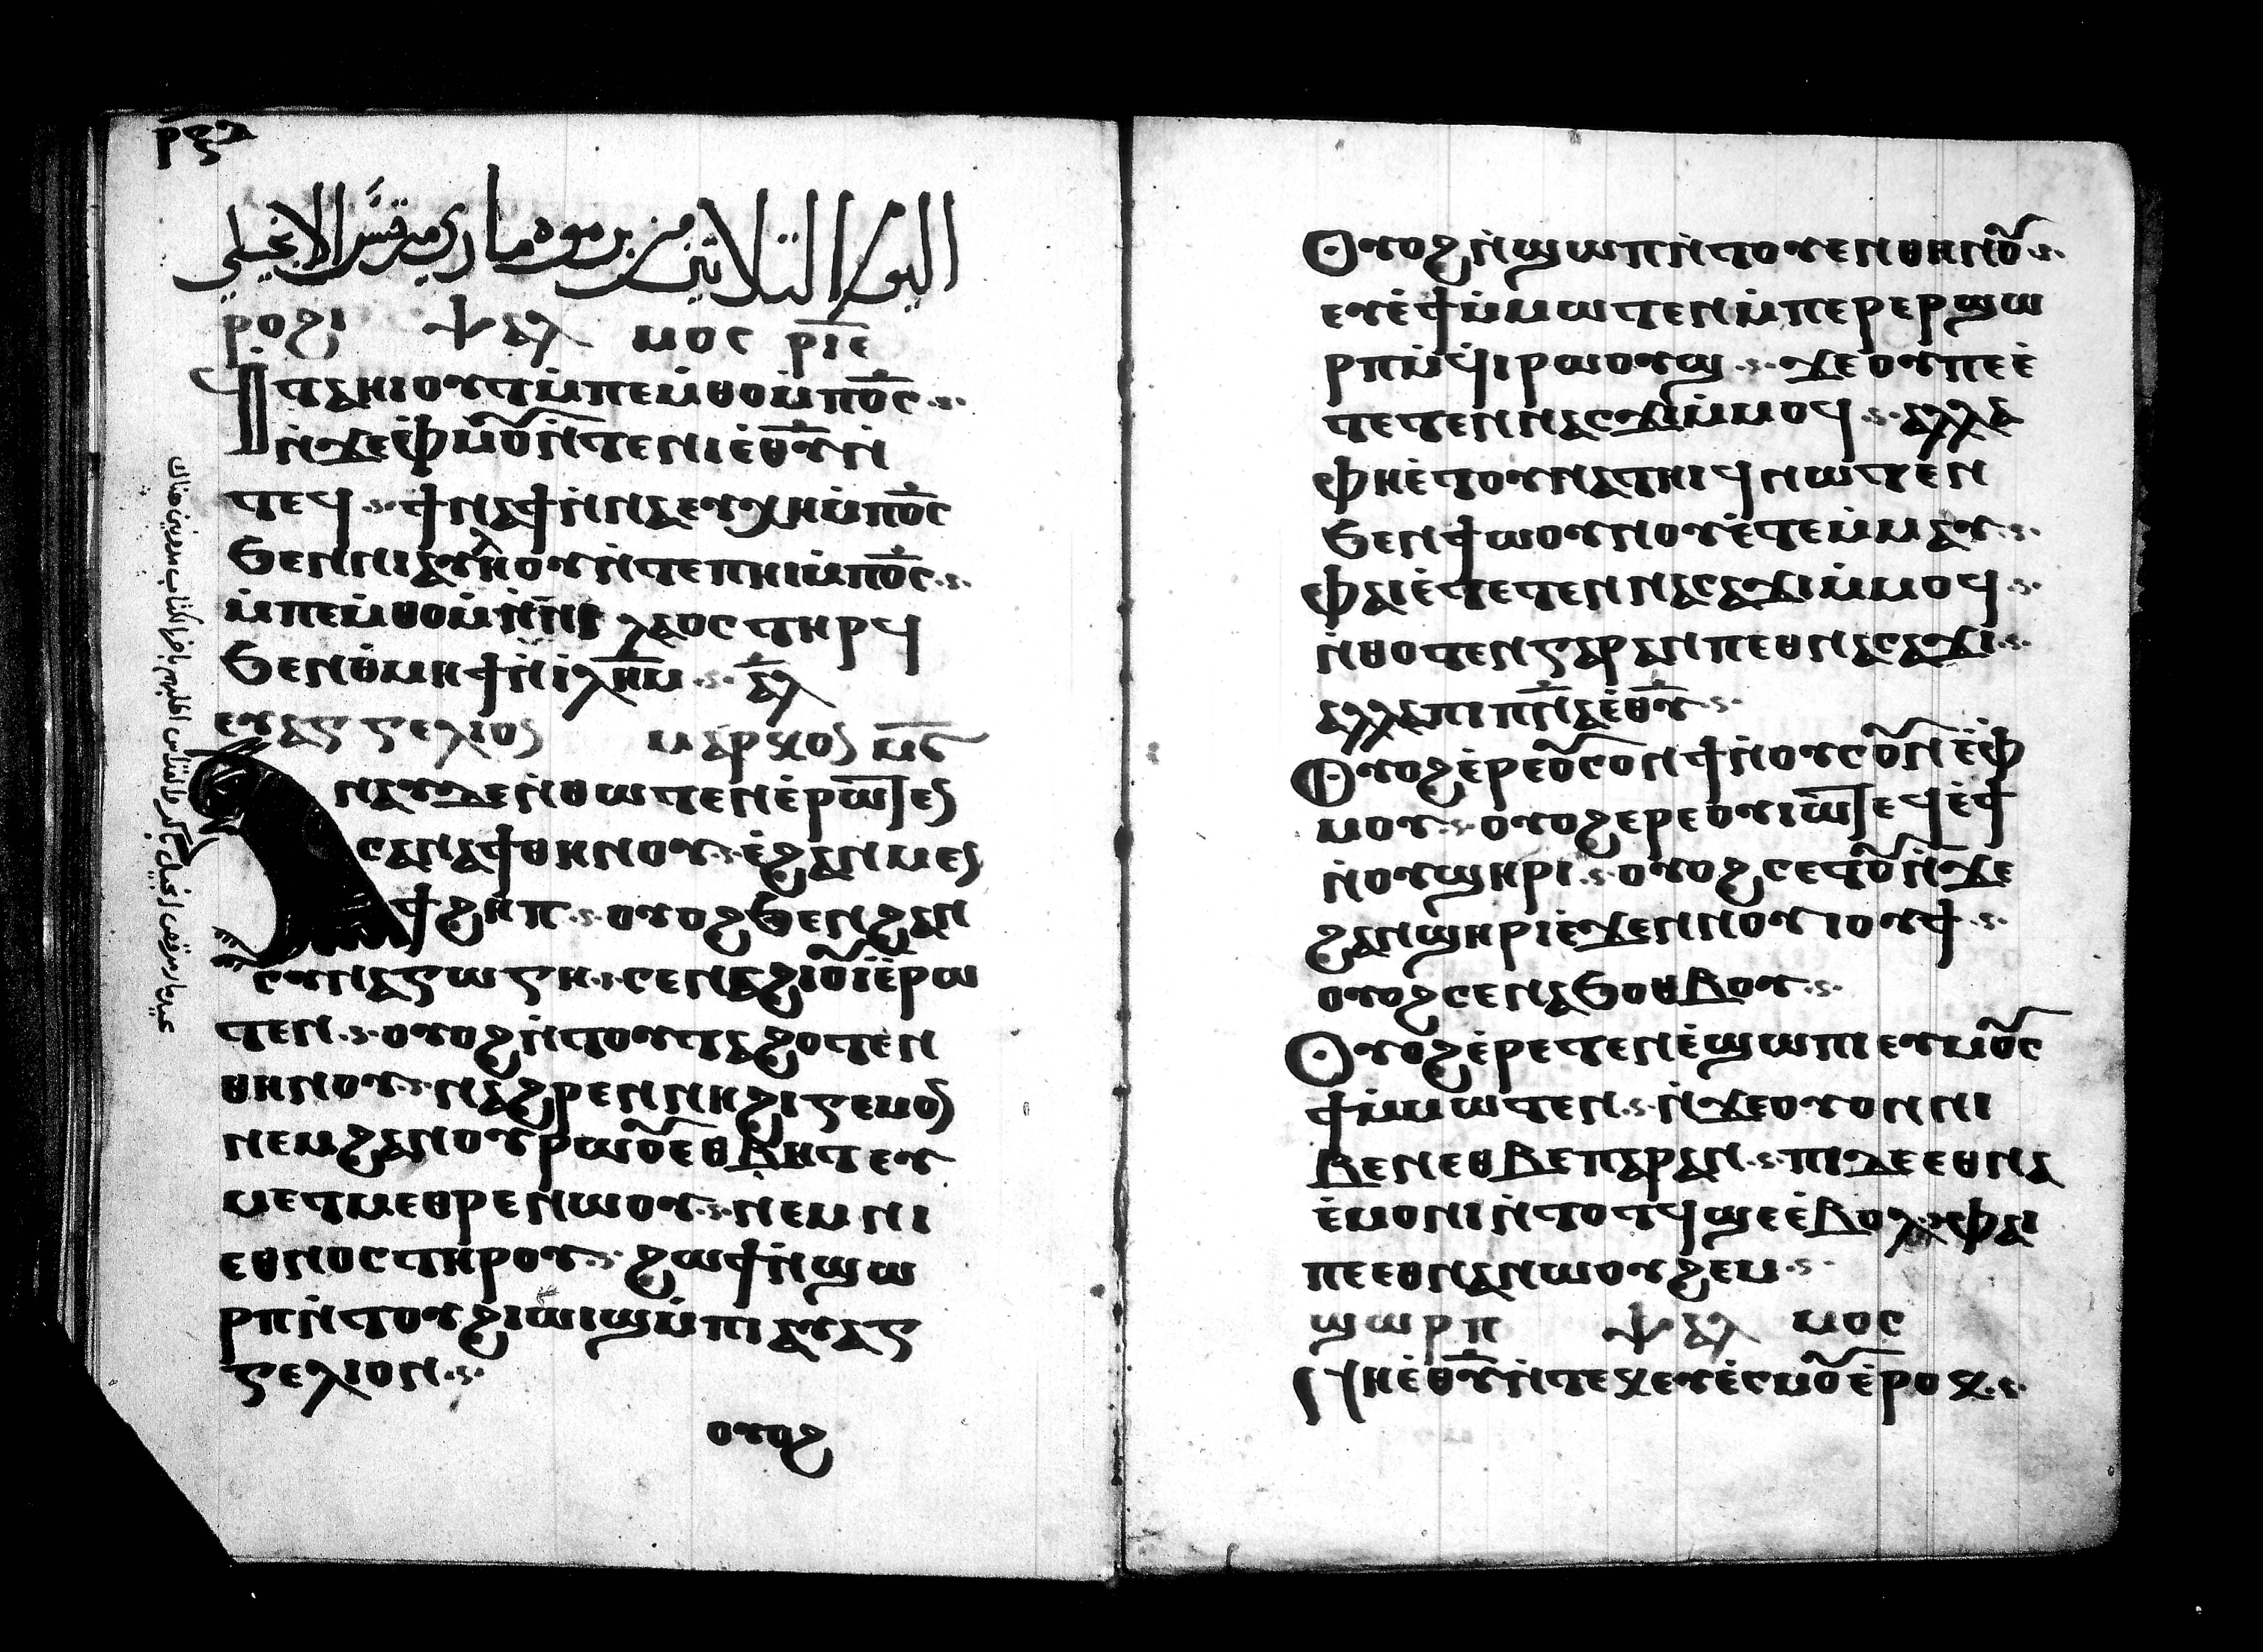 ⲣⲝⲇ
اليوم التلاتين من برموده ماري مرقس الانجيلي
ⲣⲟϩⲓ ⲯⲁⲗ ⲙⲟⲥ ⲣⲓⲉ
ϥⲧⲁⲏⲓⲟⲩⲧⲙ̇ⲡⲉⲙ̇ⲑⲟⲙ̇ⲡⲟ̅ⲥ
ⲛ̇ϫⲉⲫ̇ⲙⲟⲩⲛ̇ⲧⲉⲛⲓⲉ̇ⲑⲩ̅ⲛ̇
ⲧⲉϥ ϯⲛⲁϯⲛ̇ⲛⲁⲉⲩⲭⲏⲙ̇ⲡⲟ̅ⲥ
ϧⲉⲛⲛⲓⲁⲩⲗⲏⲟⲩⲛ̇ⲧⲉⲡⲏⲓⲙ̇ⲡⲟ̅ⲥ
ⲙ̇ⲡⲉⲙ̇ⲑⲟⲙ̇ ⲗⲁⲟⲥ ⲧⲏⲣϥ
ϧⲉⲛⲑ̇ⲙⲏϯⲛ̇ⲓⲗ̅ⲏ̅ⲙ ⲁ̅ⲗ
ⲉⲩⲁⲅⲅⲉⲗⲓⲟⲥ ⲙⲁⲣⲕⲟⲥ ⲙ̅ⲋ
ⲁⲛⲁⲩϫⲉⲛ̇ⲑⲱⲧⲉⲛⲉ̇ⲣⲱⲧⲉⲛ
ⲥⲉⲛⲁϯⲑⲏⲛⲟⲩ ⲉ̇ϩⲁⲛⲙⲉⲥ
ϯϩⲏⲡ ⲟⲩⲟϩϧⲉⲛϩⲁⲛ
ⲥⲩⲛⲁⲅⲱⲅⲏ ⲥⲉⲛⲁϩⲓⲟⲩⲓ̇ⲉ̇ⲣⲱ
ⲧⲉⲛ ⲟⲩⲟϩⲛ̇ⲧⲟⲩⲧⲁϩⲟⲧⲉⲛ
ⲑⲏⲛⲟⲩ ⲛⲁϩⲣⲉⲛⲛⲏϩⲓⲅⲉⲙⲟⲥ
ⲛⲉⲙϩⲁⲛⲟⲩⲣⲱⲟⲩⲉⲑⲃⲏⲧⲉⲩ
ⲙⲉⲧⲙⲉⲑⲣⲉⲛ̇ⲱⲟⲩ ⲛⲉⲙⲛⲓ
ⲉⲑⲛⲟⲥⲧⲏⲣⲟⲩ ϩⲱϯⲛ̇ϣⲱ
ⲣⲡⲛ̇ⲧⲟⲩϩⲓⲱⲓϣⲙ̇ⲡⲓⲉⲩⲁⲅ
ⲅⲉⲗⲓⲟⲛ
ⲟⲩⲟϩ
ⲟⲩⲟϩⲛ̇ϣⲱⲡⲛ̇ⲧⲟⲩⲉⲛⲑⲏⲛⲟⲩ
ⲉⲩⲉ̇ϯⲙ̇ⲙⲱⲧⲉⲛⲙ̇ⲡⲉⲣⲉⲣϣⲱ
ⲣⲡⲛ̇ϥⲓⲣⲱⲟⲩϣ ϫⲉⲟⲩⲡⲉⲉ̇
ⲧⲉⲧⲉⲛⲛⲁⲥⲁϫⲓⲙ̇ⲙⲟϥ ⲁⲗⲗⲁ
ⲫⲏⲉ̇ⲧⲟⲩⲛⲁⲧⲏⲓϥⲛⲱⲧⲉⲛ
ϧⲉⲛϯⲱⲟⲩⲛⲟⲩⲉ̇ⲧⲉⲙ̇ⲙⲁⲩ
ⲫⲁⲓⲉ̇ⲧⲉⲧⲉⲛⲛⲁⲥⲁϫⲓⲙ̇ⲙⲟϥ
ⲛ̇ⲑⲟⲧⲉⲛⲅⲁⲣⲁⲛⲡⲉⲑⲛⲁⲥⲁϫⲓ
ⲁⲗⲗⲁⲡⲓⲡ̅ⲛ̅ⲁⲉ̇ⲑ̅ⲩ
ⲟⲩⲟϩⲉ̇ⲣⲉⲟⲩⲥⲟⲛϯⲛ̇ⲟⲩⲥⲟⲛⲉ̇ⲫ
ⲙⲟⲩ ⲟⲩⲟϩⲉⲣⲉⲟⲩⲓⲱⲧⲉϥⲉ̇ϯ
ⲛ̇ⲟⲩϣⲏⲣⲓ ⲟⲩⲟϩⲥⲉⲧⲟⲩⲛ̇ϫⲉ
ϩⲁⲛϣⲏⲣⲓⲉ̇ϫⲉⲛⲛⲟⲩⲓⲟⲩϯ
ⲟⲩⲟϩⲥⲉⲛⲁϧⲟⲑⲃⲟⲩ
ⲟⲩⲟϩⲉ̇ⲣⲉⲧⲉⲛⲉ̇ϣⲱⲡⲓⲉⲩⲙⲟⲥ
ϯⲙ̇ⲙⲱⲧⲉⲛ ⲛ̇ϫⲉⲟⲩⲟⲛⲛⲓ
ⲃⲉⲛⲉⲑⲃⲉⲡⲁⲣⲁⲛ ⲡⲓⲇⲉⲉⲑⲛⲁ
ⲉ̇ⲙⲟⲛⲓⲛ̇ⲧⲟⲧϥϣⲉⲉ̇ⲃⲟⲗ ⲫⲁⲓ
ⲡⲉⲉⲑⲛⲁⲛⲱⲟⲩϩⲉⲙ
ϣⲱⲣⲡ ⲯⲁⲗ ⲙⲟⲥ
ⲛⲏⲉ̇ⲑ̅ⲩⲛ̇ⲧⲉⲕⲉⲩⲉ̇ⲥⲙⲟⲩⲉ̇ⲣⲟⲕ